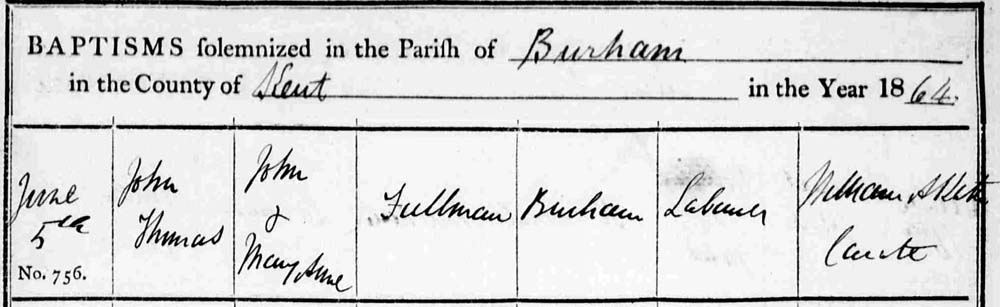 BAPTISMS solemnized in the Parish of Burham
in the County of Kent in the Year 1864.
June
5th
No. 756.
John
Thomas
John
&
Mary Anne
Fullman
Burham
Labourer
William
Curate